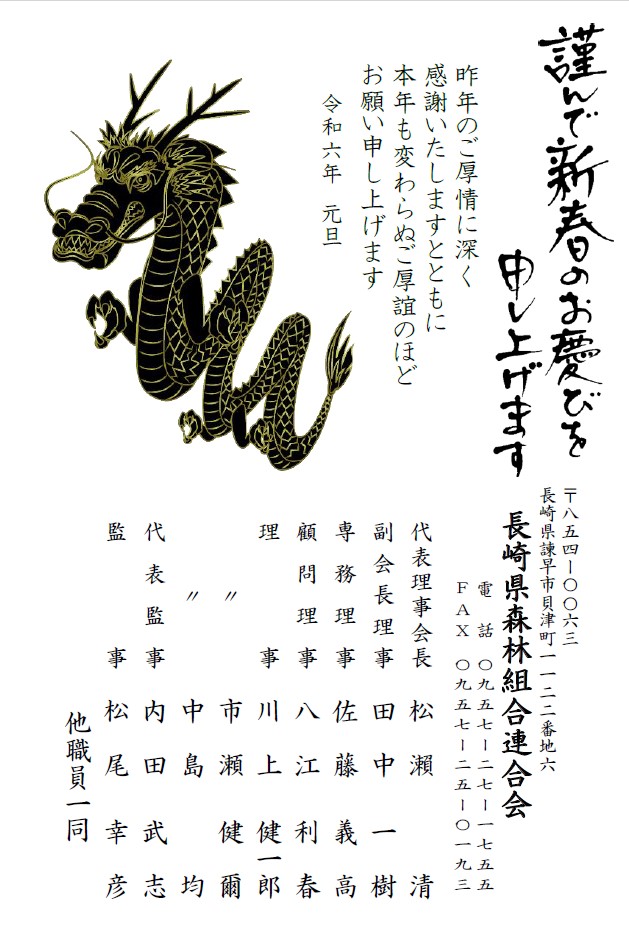 謹んで新春のお慶びを
申し上げます
昨年のご厚情に深く
感謝いたしますとともに
本年も変わらぬご厚誼のほど
お願い申し上げます
令和六年　元旦
〒八五四ー〇〇六三
長崎県諫早市貝津町一一二二番地六
長崎県森林組合連合会
電話　〇九五七ー二七ー一七五五
ＦＡＸ　〇九五七ー二五ー〇一九三
代表理事会長　松瀬　清
副会長理事　田中一樹
専務理事　佐藤義高
顧問理事　八江利春
理事　川上健一郎
〃　市瀬健爾
〃　中島　均
代表監事　内田武志
監事　松尾幸彦
他職員一同